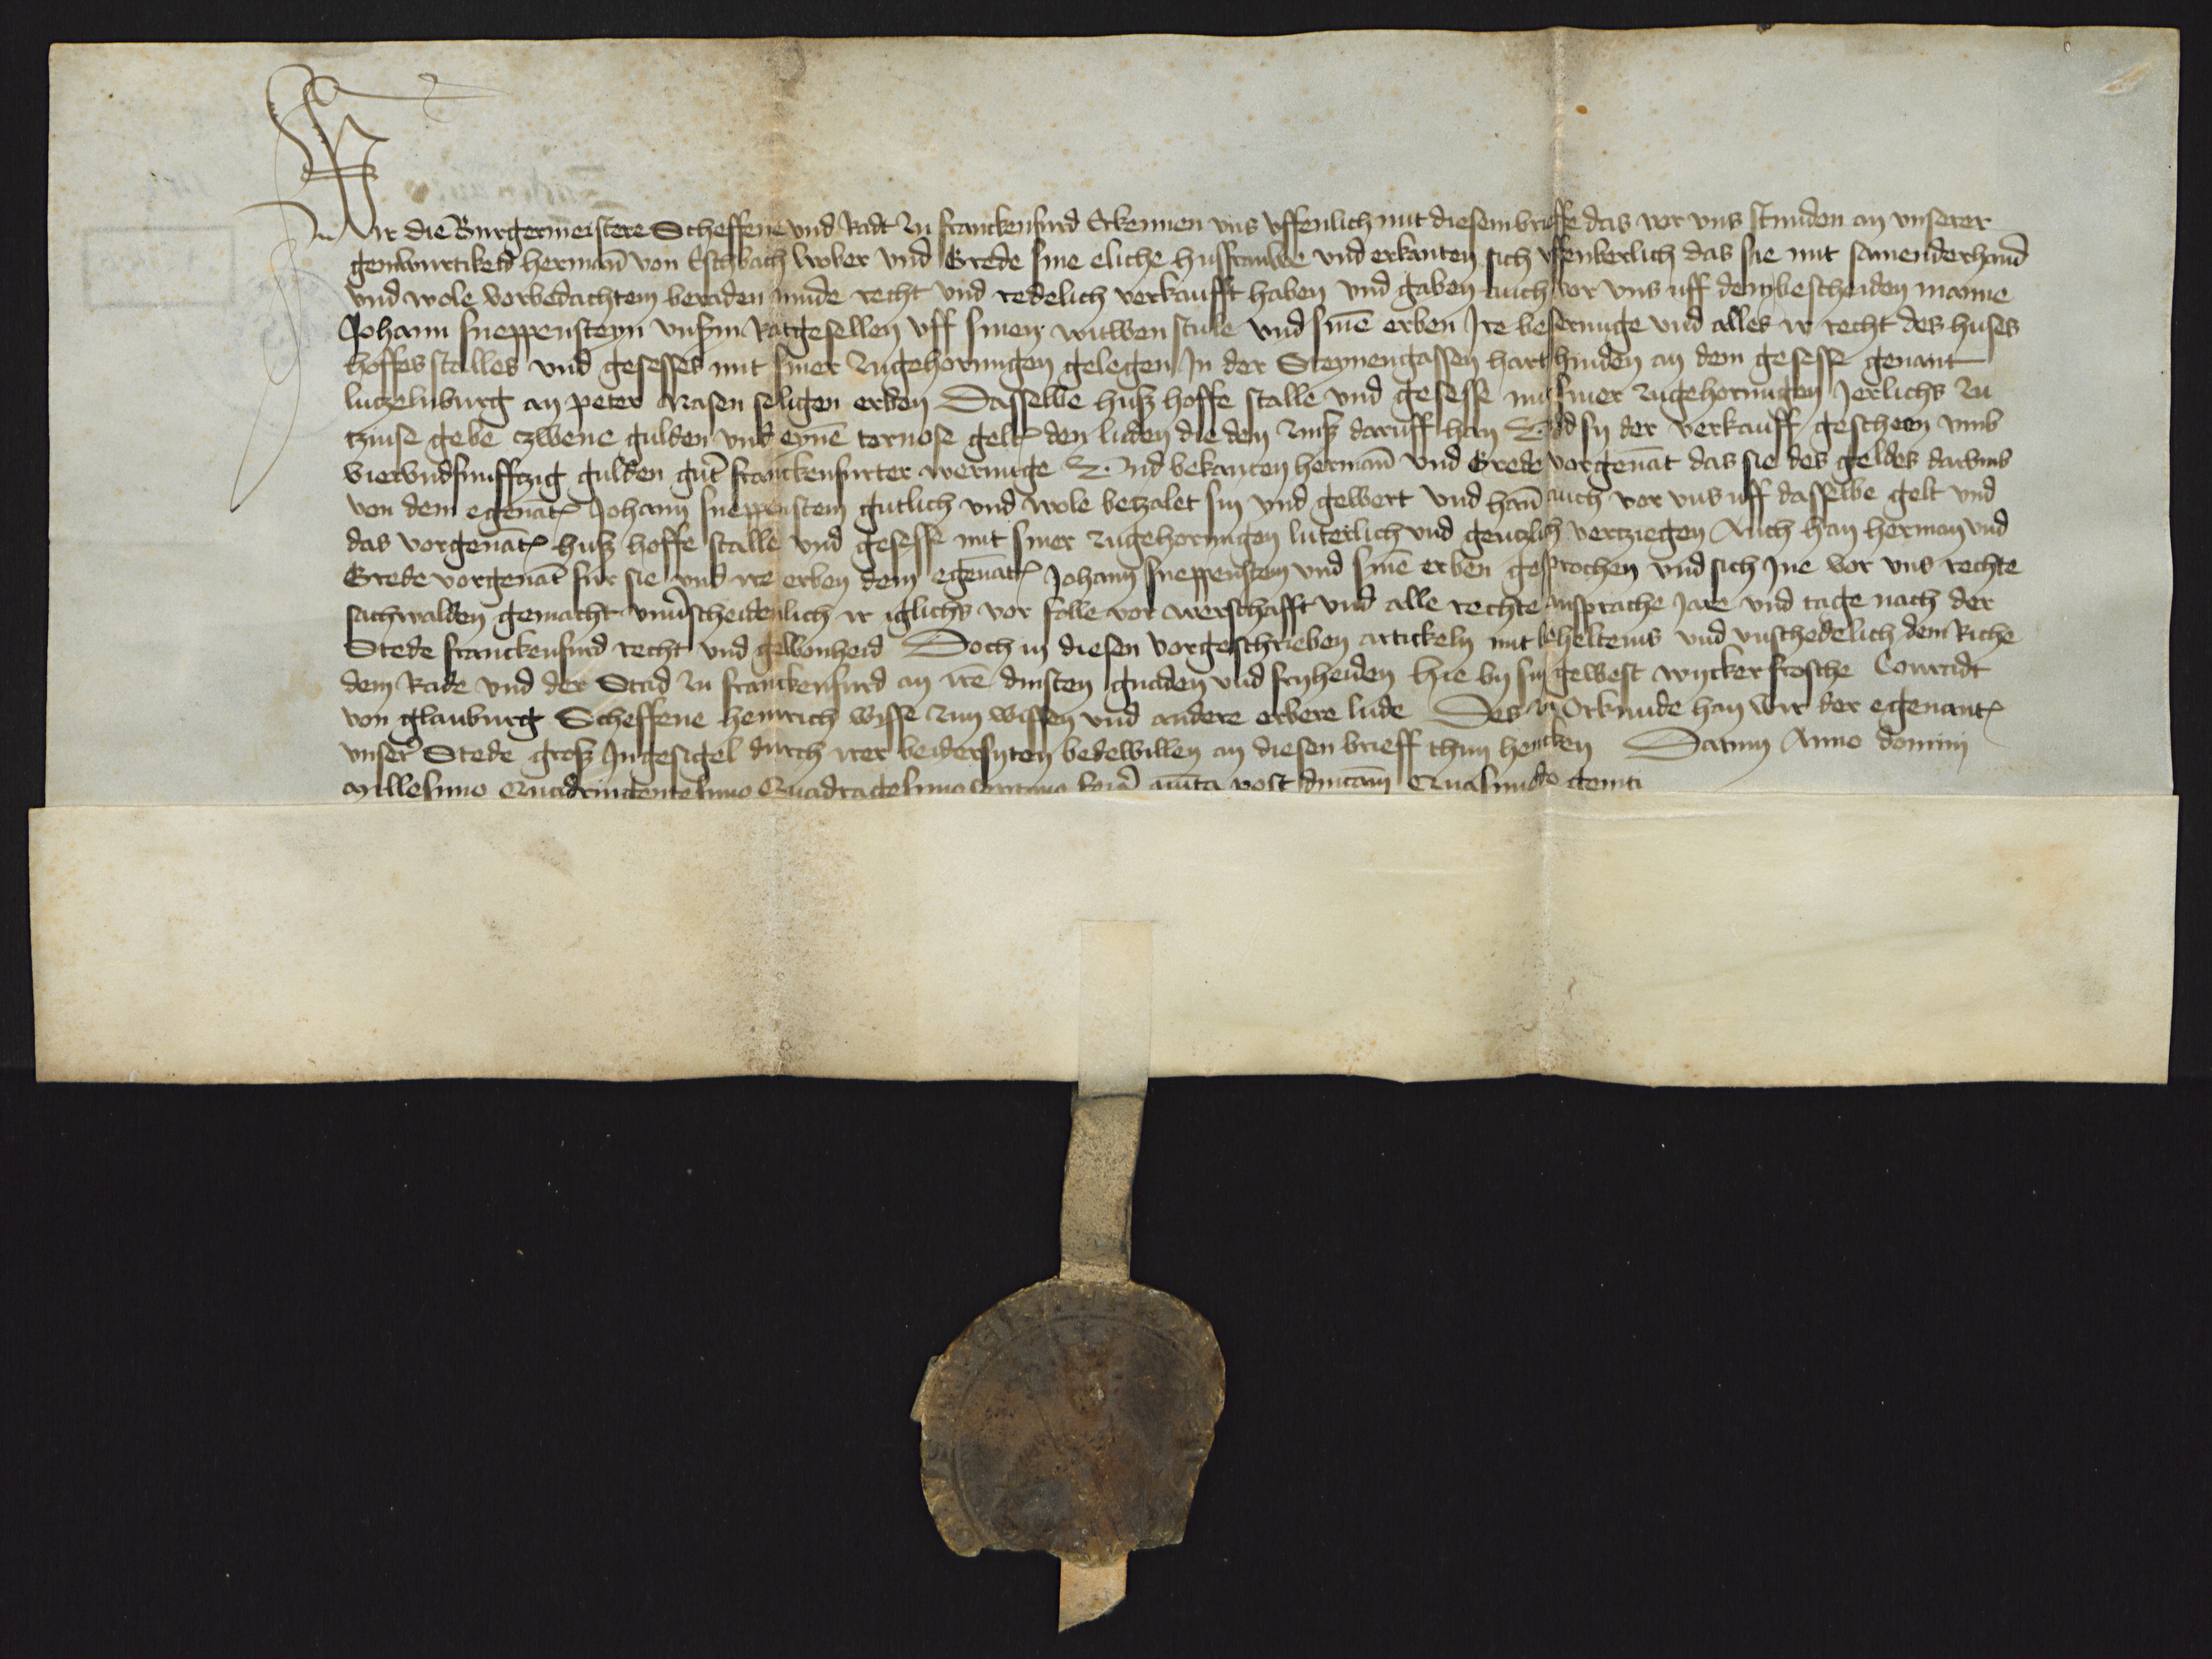 Wir die Burgermeistere Scheffene und Radt zu Franckenfurd Erkennen uns uffenlich mit diesem brieffe das vor uns stunden an unserer
genwurtikeid herman̄ von Eschbach wober und Grede sine eliche husfrauwe und erkanten sich uffenberlich das sie mit samenderhand
und wole vorbedachtem beraden mude recht und redelich verkaufft haben und gaben auch vor uns uff dem bescheiden manne
Johann sneppensteyn unserm Ratgesellen uff sinen witwen stule und sinē erben Ire besserunge und alles ir recht des huses
hoffes stalles und gesesses mit siner zugehorungen gelegen In der Steynengassen hart hinden an dem gesesse genant
lutzelnburg an peter Nasen seligen erben Dasselbe husz hoffe stalle und gesesse mit siner zugehorungen Jerlichs zu
tzinse gebe czwene gulden und eynē tornose gelt den luden die den zinsz daruff han Und sy der verkauff gescheen umb
vierundfunfftzig gulden gut franckenfurter werunge Und bekanten herman̄ und Grede vorgenāt das sie des geldes darumb
von dem egenāt Johann sneppenstein gutlich und wole betzalet sin und gewert und han̄ auch vor uns uff dasselbe gelt und
das vorgenāt husz hoffe stalle und gesesse mit siner zugehorungen luterlich und gentzlich vertziegen Auch han herman und
Grede vorgenāt fur sie und ire erben dem egenāt Johann sneppenstein und sinē erben gesprochen und sich Ine vor uns rechte
sachwalden gemacht unverscheidenlich ir iglichs vor folle vor werschafft und alle rechte ansprache Jare und tage nach der
Stede franckenfurd recht und gewonheid Doch in diesen vorgeschrieben artickeln mit beheltenis und unschedelich dem Riche
dem Rade und der Stad zu franckenfurd an irē dinsten gnaden und fryheiden hie by sin gewest wycker frosche Conradt
von glauburg Scheffene henrich wisse zum wissen und andere erbere lude Des zu Orkunde han wir der egenant
unser Stede grosz Ingesigel durch irer beidersyten bedewillen an diesen brieff thun hencken Datum Anno domini
millesimo Quadringentesimo Quadragesimo post dnīcam Quasimodo geniti